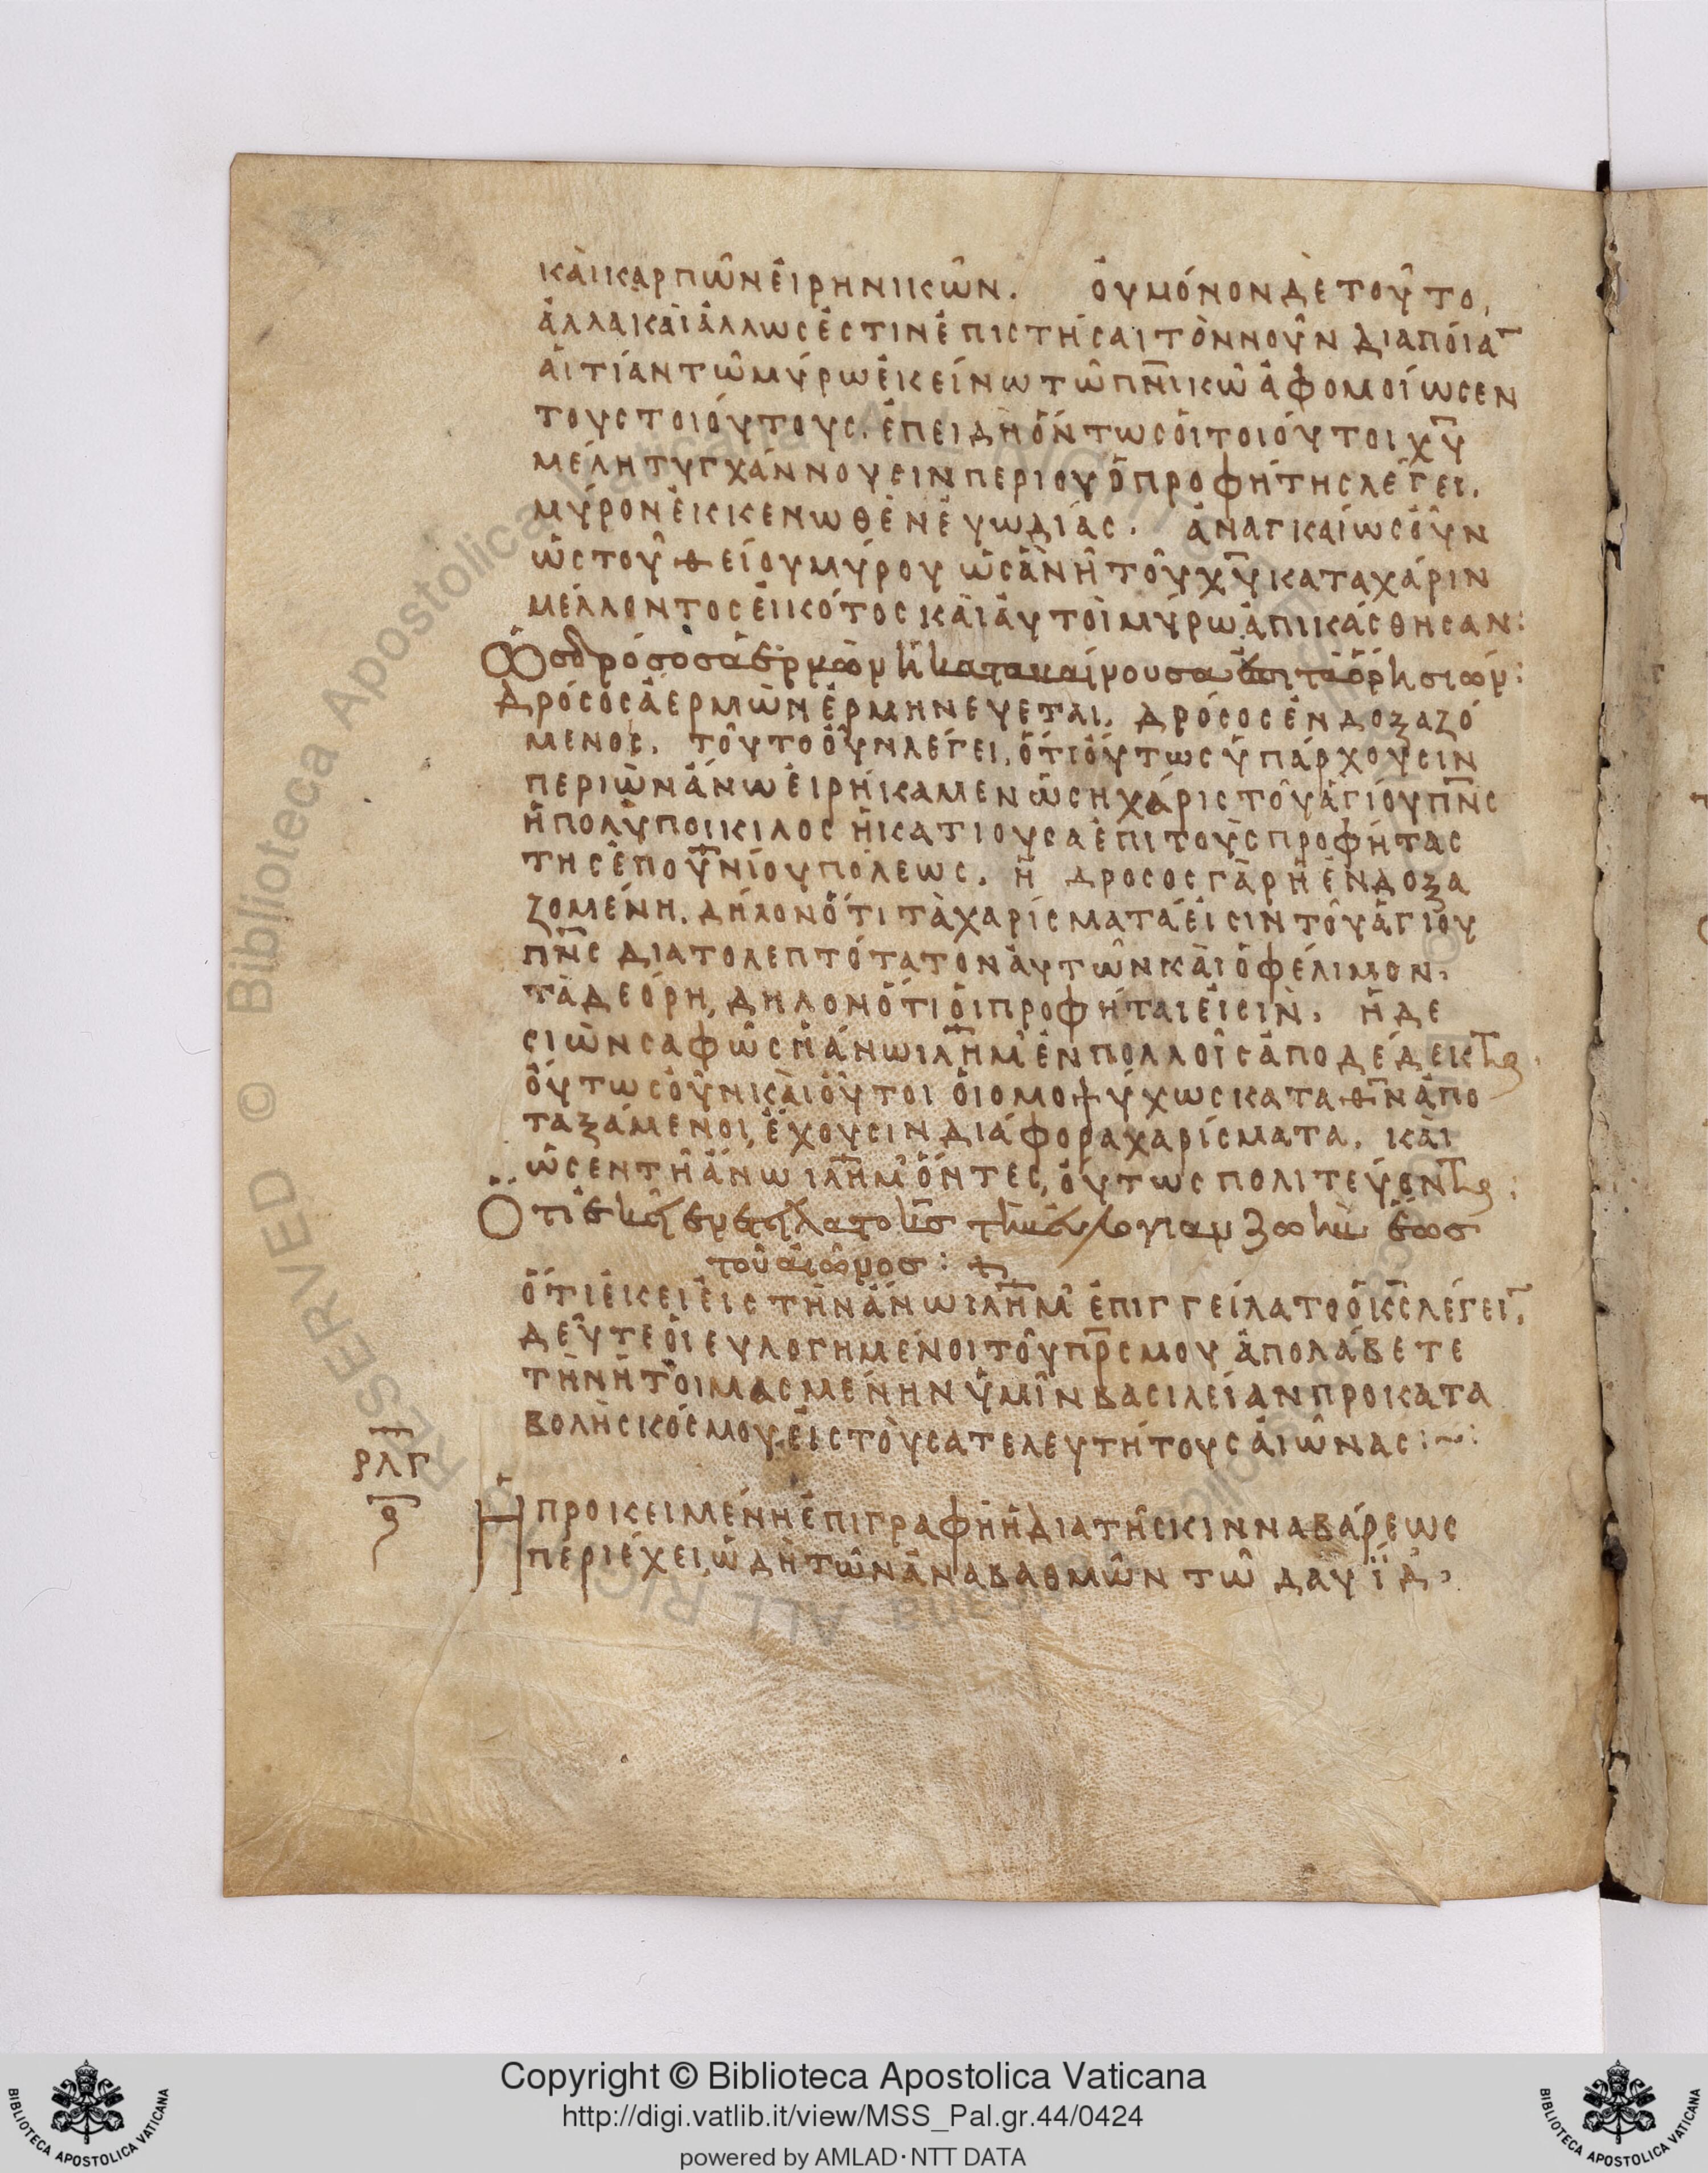 καὶ καρπῶν εἰρηνικῶν. οὐ μόνον δὲ τοῦτο,
ἀλλα καὶ ἄλλως ἔστιν ἐπιστῆσαι τὸν νοῦν δια ποία
αἰτίαν τῶ μύρω ἐκείνω τῶ πν̅ικῶ ἀφομοίωσεν
τους τοιούτους. ἐπειδὴ ὄντως οἱ τοιούτοι χυ̅
μέλη τυγχάννουσιν περι ου ὁ προφήτης λέγει.
μύρον ἐκκενωθὲν ἐυωδίας. ἀναγκαίως οὖν
ὡς τοῦ θείου μύρου ὡς ἂν ἦ τοῦ χυ̅ κατα χάριν
μέλλοντος ἐικότος καὶ ἀυτοὶ μύρω ἀπικάσθησαν:
Ὡς δρόσος ἀερμὼν ἡ καταβαίνουσα ἐπι τὰ ὄρη σιών:
Δρόσος ἀερμὼν ἑρμηνεύεται. δρόσος ἐνδοξαζό
μενος. τοῦτο οὖν λέγει, ὅτι οὕτως ὑπάρχουσιν
περι ὧν ἄνω ἐιρήκαμεν ὡς η χάρις τοῦ ἁγίου πν̅ς
ἡ πολυποικιλος ἡ κατιουσα ἐπι τοὺς προφήτας
της ἐπουν̅ίου πόλεως. ἡ δροσος γὰρ ἡ ἐνδοξα
ζομένη. δήλον ὅτι τὰ χαρίσματά ἐισιν τοῦ ἁγίου
πν̅ς δια το λεπτότατον ἀυτῶν καὶ ὀφέλιμον.
τὰ δε όρη, δηλονότι ὁι προφήται ἐισιν. ἡ δε
σιὼν σαφῶς ἡ άνω ιλη̅μ ἐν πολλοῖς ἀποδέδεικται.
ὅυτως οὖν καὶ οὗτοι ὁι ομοψύχως κατα θν̅ ἀπο
ταξάμενοι, ἔχουσιν διάφορα χαρίσματα. καὶ
ὡς εν τῆ ἄνω ιλη̅μ ὄντες, ὅυτως πολιτεύονται:
Ὅτι ἐκεῖ ἐνετείλατο κς̅ τὴν ἐυλογιαν ζωὴν ἕως
τοῦ αἰῶνος:
ὅτι ἐκει ἐις τὴν ἄνω ιλη̅μ ἐπιγγείλατο ὁ κς̅ λέγει.
δεῦτε ὁι ευλογημένοι τοῦ πρ̅ς μου ἀπολάβετε
τὴν ἡτοιμασμένην ὑμῖν βασιλείαν προ κατα
βολῆς κόσμου, ἐις τοὺς ατελευτήτους ἀιῶνας:~:
ρλγ
Ἡ προικειμένη ἐπιγραφὴ ἡ δια τῆς κινναβάρεως
περιέχει, ὠδὴ τῶν ἀναβαθμῶν τῶ δαυϊδ.
Copyright © Biblioteca Apostolica Vaticana
http://digi.vatlib.it/view/MSS_Pal.gr.44/0424
powered by AMLAD·NTT DATA
BIBLIOTECA APOSTOLICA VATICANA
BIBLIOTECA APOSTOLICA VATICANA